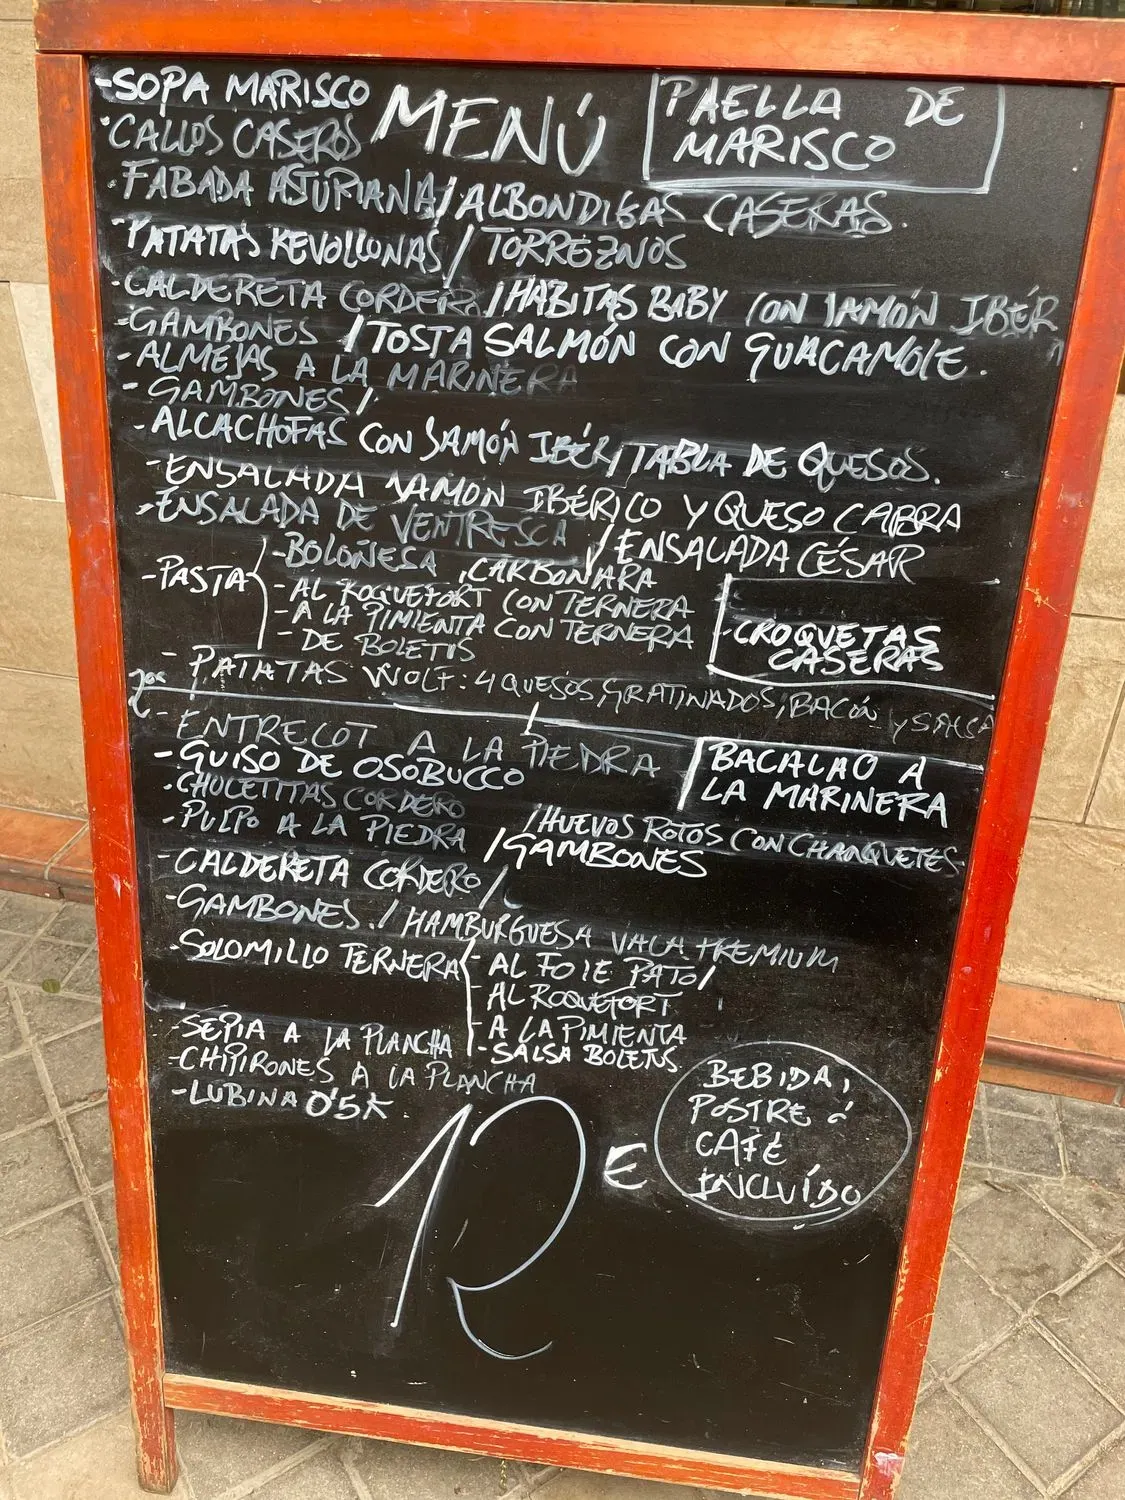 -SOPA MARISCO
MENÚ
PAELLA DE
MARISCO
·CALLOS CASEROS
·FABADA ASTURIANA/ALBONDIGAS CASERAS.
·PATATAS REVOLLONAS / TORREZNOS
·CALDERETA CORDERO /HABITAS BABY CON JAMÓN IBÉR
-GAMBONES /TOSTA SALMÓN CON GUACAMOLE.
-ALMEJAS A LA MARINERA
-GAMBONES/
-ALCACHOFAS CON JAMÓN IBÉR/TABLA DE QUESOS.
-ENSALADA JAMÓN IBÉRICO Y QUESO CABRA
-ENSALADA DE VENTRESCA /ENSALADA CÉSAR
-PASTA
-BOLOÑESA, CARBONARA
-AL ROQUEFORT CON TERNERA
-A LA PIMIENTA CON TERNERA
-DE BOLETUS
-CROQUETAS
CASERAS
-PATATAS WOLF: 4 QUESOS, GRATINADOS, BACÓN Y SALSA
-ENTRECOT A LA PIEDRA
BACALAO A
LA MARINERA
-GUISO DE OSOBUCCO
·CHULETITAS CORDERO
·PULPO A LA PIEDRA
/HUEVOS ROTOS CON CHANQUETES
/GAMBONES
-CALDERETA CORDERO/
-GAMBONES./HAMBURGUESA VACA PREMIUM
-SOLOMILLO TERNERA
-AL FOIE PATO/
-AL ROQUEFORT
-A LA PIMIENTA
-SALSA BOLETUS
-SEPIA A LA PLANCHA
-CHIPIRONES A LA PLANCHA
-LUBINA 0'5K
12 €
BEBIDA,
POSTRE ó
CAFÉ
INCLUÍDO